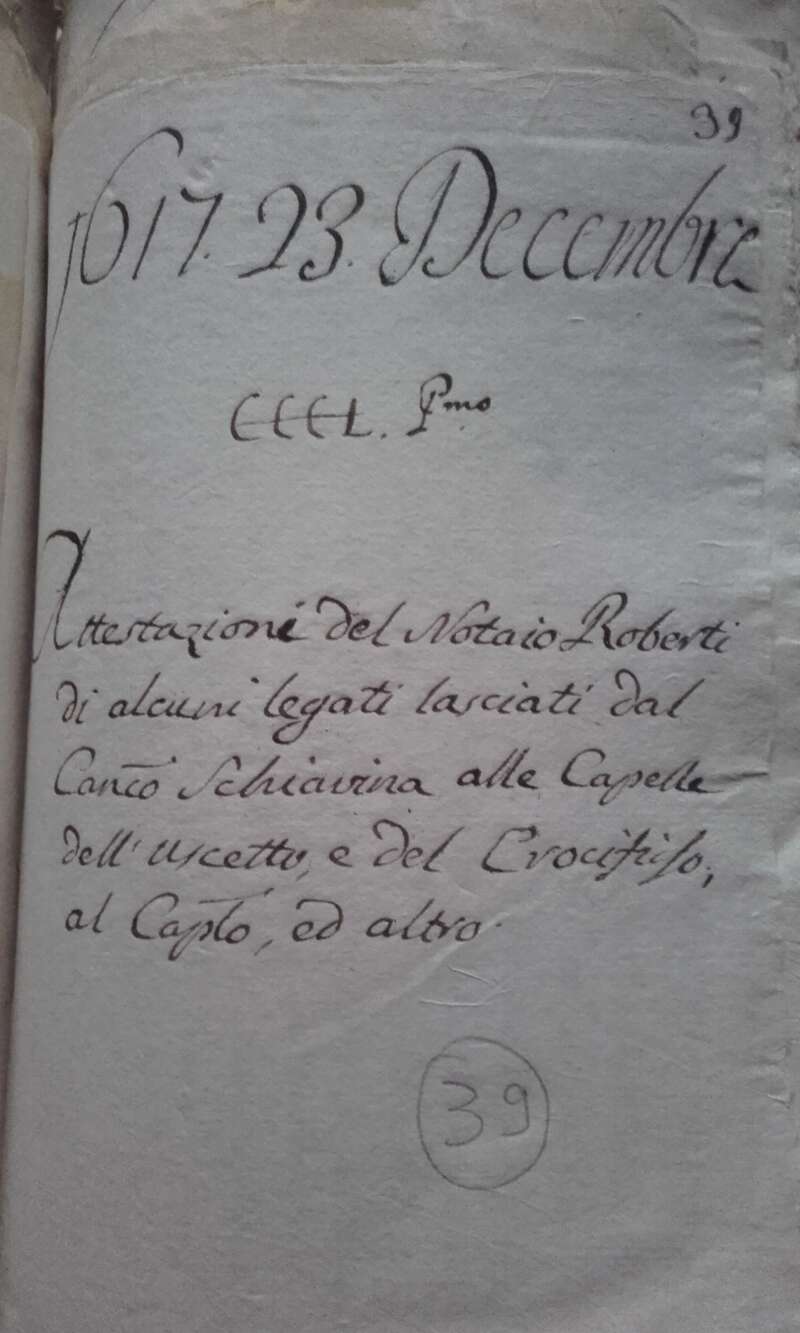 39
1617. 23. Decembre
CCCL. Pmo
Attestazione del Notaio Roberti
di alcuni legati lasciati dal
Canco Schiavina alle Capelle
dell' Uscetto, e del Crocifisso,
al Caplo, ed altro.
39